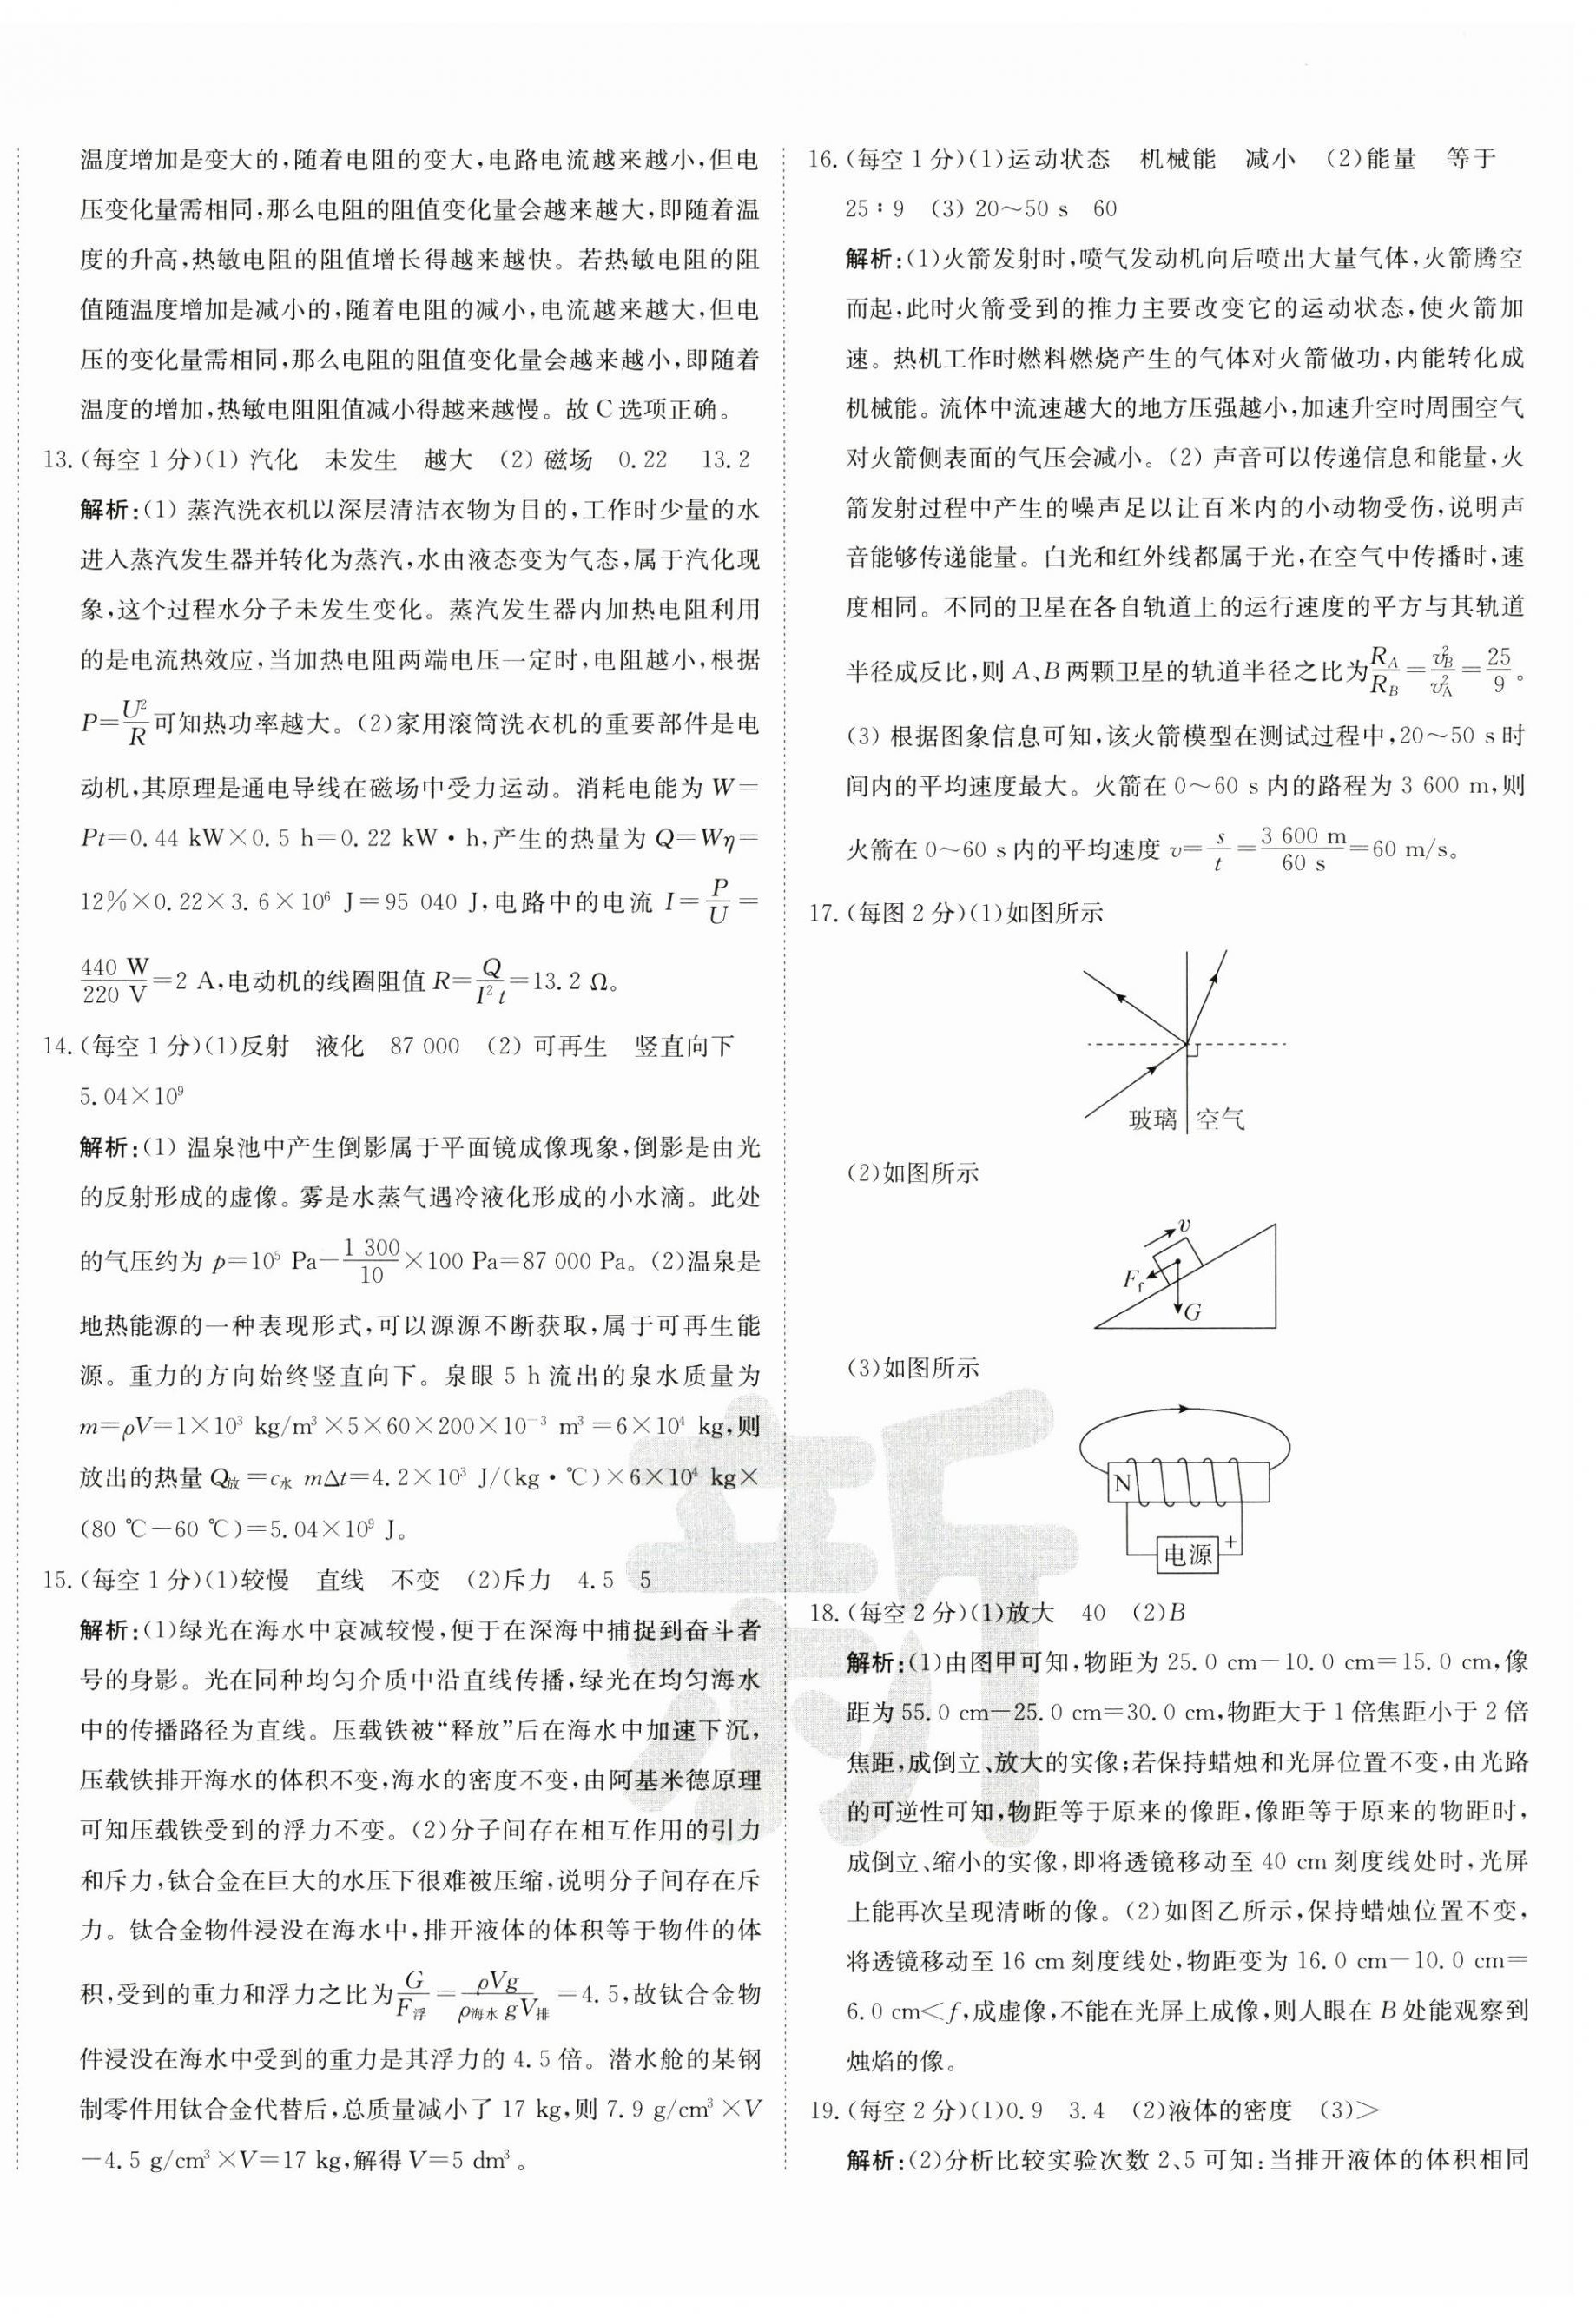 温度增加是变大的,随着电阻的变大,电路电流越来越小,但电
压变化量需相同,那么电阻的阻值变化量会越来越大,即随着温
度的升高,热敏电阻的阻值增长得越来越快。若热敏电阻的阻
值随温度增加是减小的,随着电阻的减小,电流越来越大,但电
压的变化量需相同,那么电阻的阻值变化量会越来越小,即随着
温度的增加,热敏电阻阻值减小得越来越慢。故 C 选项正确。
13. (每空 1 分)(1) 汽化　未发生　越大　(2) 磁场　0.22　13.2
解析:(1) 蒸汽洗衣机以深层清洁衣物为目的,工作时少量的水
进入蒸汽发生器并转化为蒸汽,水由液态变为气态,属于汽化现
象,这个过程水分子未发生变化。蒸汽发生器内加热电阻利用
的是电流热效应,当加热电阻两端电压一定时,电阻越小,根据
P=U²/R可知热功率越大。(2)家用滚筒洗衣机的重要部件是电
动机,其原理是通电导线在磁场中受力运动。消耗电能为 W=
Pt=0.44 kW×0.5 h=0.22 kW·h,产生的热量为 Q=Wη=
12%×0.22×3.6×10⁶ J=95 040 J,电路中的电流 I=P/U=
440 W/220 V=2 A,电动机的线圈阻值 R=Q/I²t=13.2 Ω。
14. (每空 1 分)(1)反射　液化　87 000　(2) 可再生　竖直向下
5.04×10⁹
解析:(1) 温泉池中产生倒影属于平面镜成像现象,倒影是由光
的反射形成的虚像。雾是水蒸气遇冷液化形成的小水滴。此处
的气压约为 p=10⁵ Pa−1 300/10×100 Pa=87 000 Pa。(2)温泉是
地热能源的一种表现形式,可以源源不断获取,属于可再生能
源。重力的方向始终竖直向下。泉眼 5 h 流出的泉水质量为
m=ρV=1×10³ kg/m³×5×60×200×10⁻³ m³=6×10⁴ kg,则
放出的热量 Q放=c水 mΔt=4.2×10³ J/(kg·℃)×6×10⁴ kg×
(80 ℃−60 ℃)=5.04×10⁹ J。
15. (每空 1 分)(1)较慢　直线　不变　(2)斥力　4.5　5
解析:(1)绿光在海水中衰减较慢,便于在深海中捕捉到奋斗者
号的身影。光在同种均匀介质中沿直线传播,绿光在均匀海水
中的传播路径为直线。压载铁被“释放”后在海水中加速下沉,
压载铁排开海水的体积不变,海水的密度不变,由阿基米德原理
可知压载铁受到的浮力不变。(2)分子间存在相互作用的引力
和斥力,钛合金在巨大的水压下很难被压缩,说明分子间存在斥
力。钛合金物件浸没在海水中,排开液体的体积等于物件的体
积,受到的重力和浮力之比为G/F浮=ρVg/ρ海水gV排=4.5,故钛合金物
件浸没在海水中受到的重力是其浮力的 4.5 倍。潜水舱的某钢
制零件用钛合金代替后,总质量减小了 17 kg,则 7.9 g/cm³×V
−4.5 g/cm³×V=17 kg,解得 V=5 dm³。
16. (每空 1 分)(1)运动状态　机械能　减小　(2)能量　等于
25∶9　(3) 20～50 s　60
解析:(1)火箭发射时,喷气发动机向后喷出大量气体,火箭腾空
而起,此时火箭受到的推力主要改变它的运动状态,使火箭加
速。热机工作时燃料燃烧产生的气体对火箭做功,内能转化成
机械能。流体中流速越大的地方压强越小,加速升空时周围空气
对火箭侧表面的气压会减小。(2) 声音可以传递信息和能量,火
箭发射过程中产生的噪声足以让百米内的小动物受伤,说明声
音能够传递能量。白光和红外线都属于光,在空气中传播时,速
度相同。不同的卫星在各自轨道上的运行速度的平方与其轨道
半径成反比,则 A、B 两颗卫星的轨道半径之比为R_A/R_B=v_B²/v_A²=25/9。
(3) 根据图象信息可知,该火箭模型在测试过程中,20～50 s 时
间内的平均速度最大。火箭在 0～60 s 内的路程为 3 600 m,则
火箭在 0～60 s 内的平均速度 v=s/t=3 600 m/60 s=60 m/s。
17. (每图 2 分)(1)如图所示
玻璃 空气
(2)如图所示
v
Ff
G
(3)如图所示
N
电源 +
18. (每空 2 分)(1)放大　40　(2)B
解析:(1)由图甲可知,物距为 25.0 cm−10.0 cm=15.0 cm,像
距为 55.0 cm−25.0 cm=30.0 cm,物距大于 1 倍焦距小于 2 倍
焦距,成倒立、放大的实像;若保持蜡烛和光屏位置不变,由光路
的可逆性可知,物距等于原来的像距,像距等于原来的物距时,
成倒立、缩小的实像,即将透镜移动至 40 cm 刻度线处时,光屏
上能再次呈现清晰的像。(2)如图乙所示,保持蜡烛位置不变,
将透镜移动至 16 cm 刻度线处,物距变为 16.0 cm−10.0 cm=
6.0 cm<f,成虚像,不能在光屏上成像,则人眼在 B 处能观察到
烛焰的像。
19. (每空 2 分)(1)0.9　3.4　(2)液体的密度　(3)>
解析:(2)分析比较实验次数 2、5 可知:当排开液体的体积相同
新